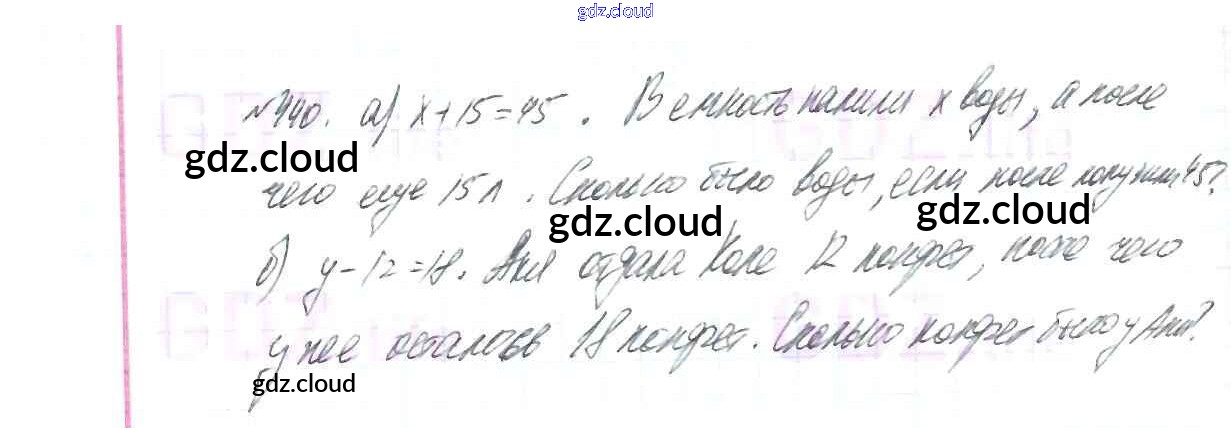 gdz.cloud
№440. а) x+15=45. В емкость налили x воды, а после
чего еще 15 л. Сколько было воды, если после получили 45?
б) y-12=18. Аня отдала Коле 12 конфет, после чего
у нее осталось 18 конфет. Сколько конфет было у Ани?
gdz.cloud
gdz.cloud
gdz.cloud
gdz.cloud